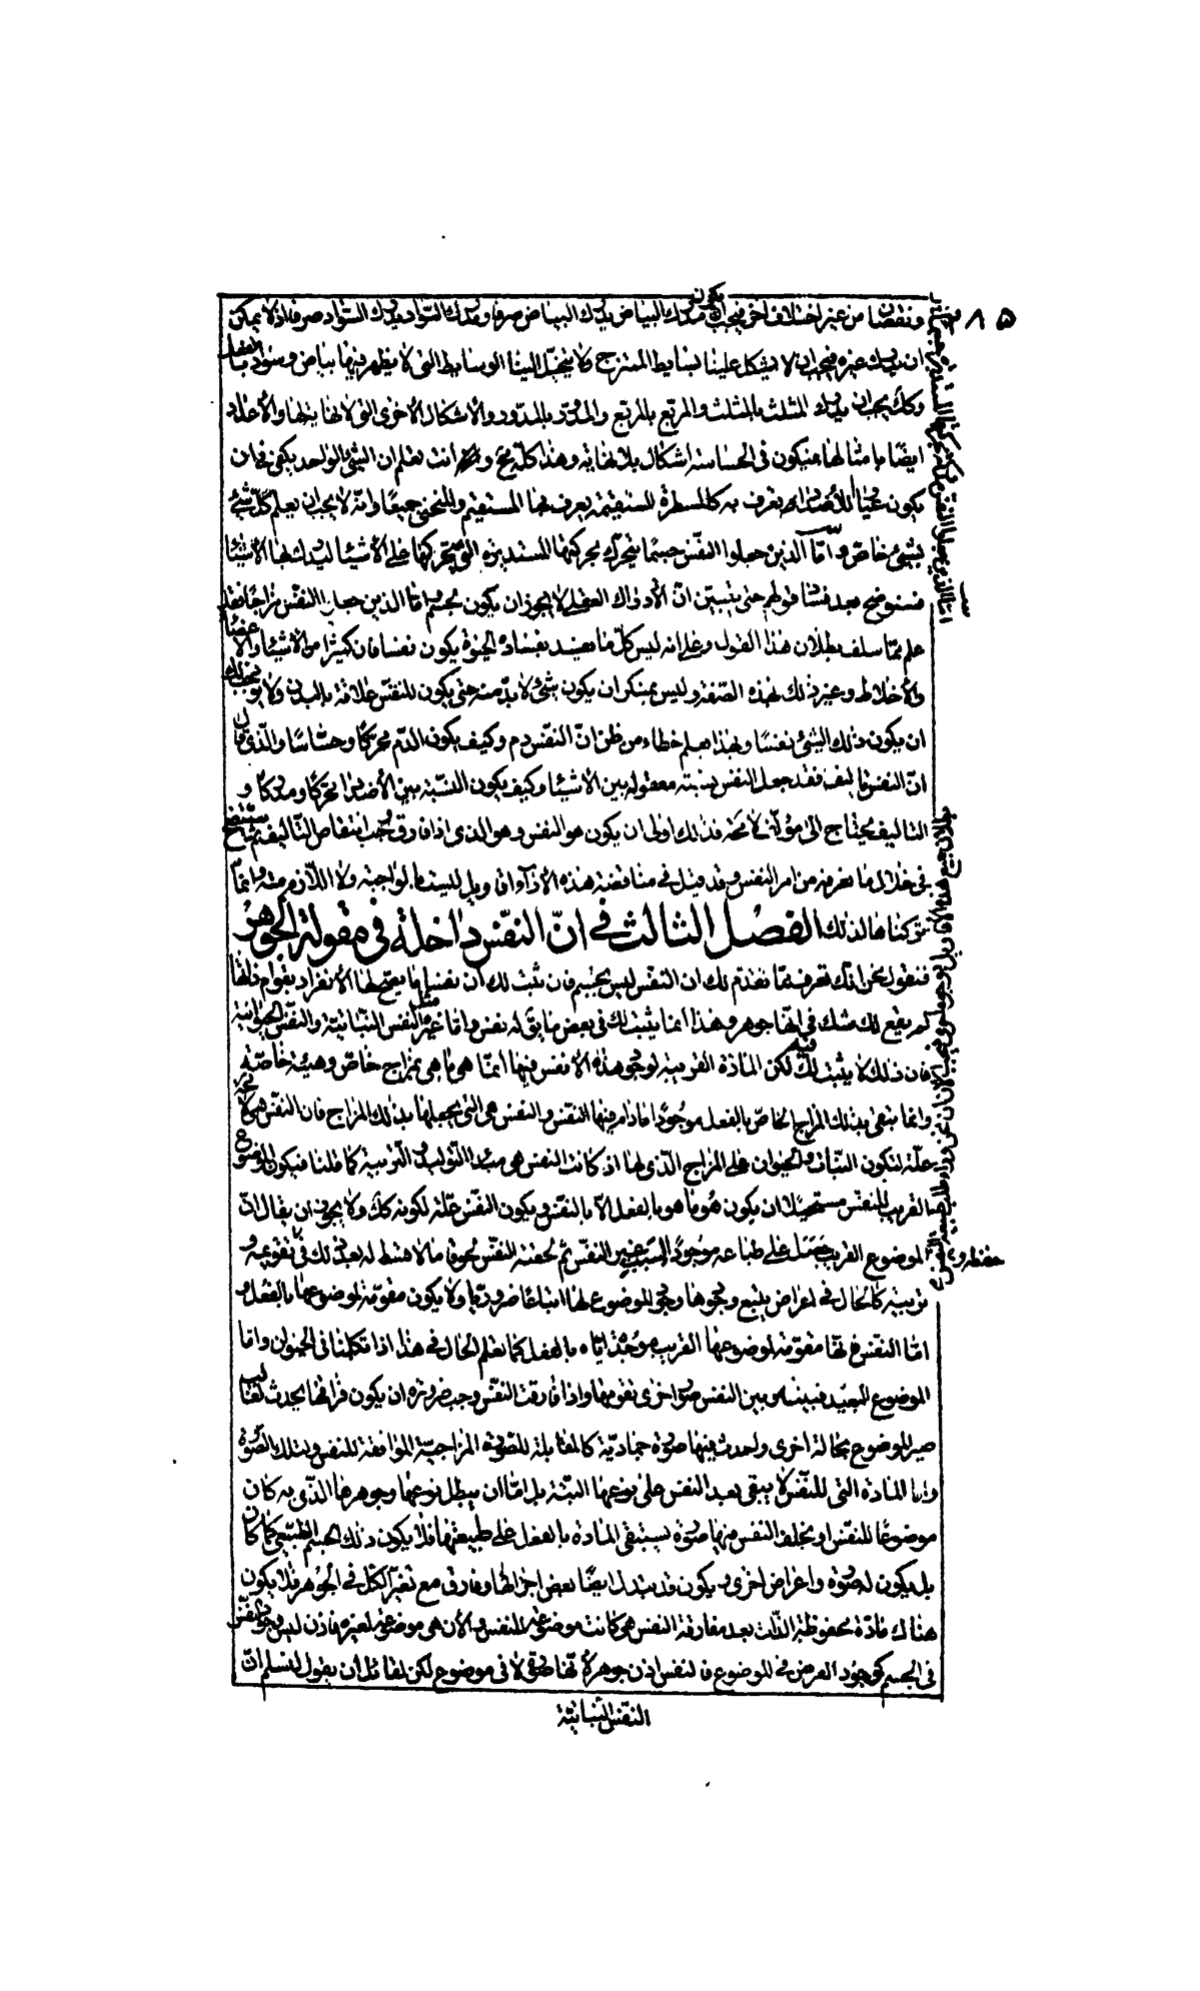 ٢٨٥
ونقصان من غير اختلاف اخر فيجب ان يكون مدرك البياض يدرك البياض صرفا ومدرك السواد يدرك السواد صرفا اذ لا يمكن
ان يدرك غيره فيجب ان لا يشكل علينا بسايط الممتزج ولا يتخيل الينا الوسايط التى لا يظهر فيها بياض وسواد بالفعل
وكك يجب ان يدرك المثلث بالمثلث والمربع بالمربع والمدور بالمدور والأشكال الأخرى التى لا نهاية لها والأعداد
ايضًا بامثالها فيكون فى الحاسة اشكال بلا نهاية وهذا كله مح وانت تعلم ان الشئ الواحد يكفى فى ان
يكون عيارا للأضداد يعرف به كالمسطرة المستقيمة يعرف بها المستقيم والمنحنى جميعًا وانه لا يجب ان يعلم كل شئ
بشئ خاص واما الذين جعلوا النفس جسمًا يتحرك بحركتها المستديرة التى يتحركها على الأشياء ليدرك بها الأشياء
فسنوضح بعد فساد قولهم حتى يتبين ان الأدراك العقلى لا يجوز ان يكون بجسم واما الذين جعلوا النفس مزاجًا فقد
علم مما سلف بطلان هذا القول وعلى انه ليس كل ما يفسد بفساده الحيوة يكون نفسا فان كثيرًا من الأشياء والأعضاء
والأخلاط وغير ذلك بهذه الصفة وليس بمنكر ان يكون شئ لا بد منه حتى يكون للنفس علاقة بالبدن ولا يوجب ذلك
ان يكون ذلك الشئ نفسًا وبهذا يعلم خطاء من ظن ان النفس دم وكيف يكون الدم محركًا وحساسًا والذى قال
ان النفس تاليف فقد جعل النفس نسبة معقولة بين الأشياء وكيف يكون النسبة بين الأضداد محركًا ومدركًا و
التاليف يحتاج الى مؤلف لا محة فذلك اولى ان يكون هو النفس وهو الذى اذا فارق وجب انتقاض التاليف ثم سيتضح
فى خلال ما نعرفه من امر النفس وقد قيل فى مناقضة هذه الأراء اقاويل ليست بالواجبة ولا اللازمة وانما
تركناها لذلك الفصل الثالث فى ان النفس داخلة فى مقولة الجوهر
فنقول نحن انك تعرف مما تقدم لك ان النفس ليس بجسم فان ثبت لك ان نفسا ما يصح لها الأنفراد بقوام ذاتها
لم يقع لك شك فى انها جوهر وهذا انما يثبت لك فى بعض ما يق له نفس واما غيره مثل النفس النباتية والنفس الحيوانية
فان ذلك لا يثبت لك فيه لكن المادة القريبة لوجود هذه الأنفس فيها انما هى ما هى بمزاج خاص وهيئة خاصة
وانما يبقى بذلك المزاج الخاص بالفعل موجودًا ما دام فيها النفس والنفس هى التى يجعلها بذلك المزاج فان النفس هى لا محة
علة لتكون النبات والحيوان على المزاج الذى لها اذ كانت النفس هى مبدء التوليد والتربية كما قلنا فيكون الموضوع
القريب للنفس مستحيلا ان يكون هو ما هو بالفعل الا بالنفس ويكون النفس علة لكونه كك ولا يجوز ان يقال ان
الموضوع القريب حصل على طباعه موجودًا لسبب غير النفس ثم لحقته النفس لحوق ما لا قسط له بعد ذلك فى تقويمه و
تربيته كالحال فى اعراض يتبع وجودها وجود الموضوع لها اتباعًا ضروريًا ولا يكون مقومة لموضوعها بالفعل و
اما النفس فانها مقومة لموضوعها القريب موجدة اياه بالفعل كما تعلم الحال فى هذا اذا تكلمنا فى الحيوان واما
الموضوع البعيد فبينه وبين النفس صور اخرى تقومها واذا فارقت النفس وجب ضرورة ان يكون فراقها يحدث لغالب
صير الموضوع بحالة اخرى واحدث فيها صورة جمادية كالمقابلة للصورة المزاجية الموافقة للنفس ولتلك الصورة
والمادة التى للنفس لا يبقى بعد النفس على نوعها البتة بل اما ان يبطل نوعها وجوهرها الذى به كان
موضوعًا للنفس او يخلف النفس فيها صورة يستبقى المادة بالفعل على طبيعتها فلا يكون ذلك الجسم الطبيعى كما كان
بل يكون له صورة واعراض اخرى ويكون قد تبدل ايضًا بعض اجزائها وفارق مع تغير الكل فى الجوهر فلا يكون
هناك مادة محفوظة الذات بعد مفارقة النفس هى كانت موضوعة للنفس والأن هى موضوعة لغيره فاذن ليس وجود النفس
فى الجسم كوجود العرض فى الموضوع فالنفس اذن جوهر لأنها صورة لا فى موضوع لكن لقائل ان يقول لنسلم ان
النفس النباتية